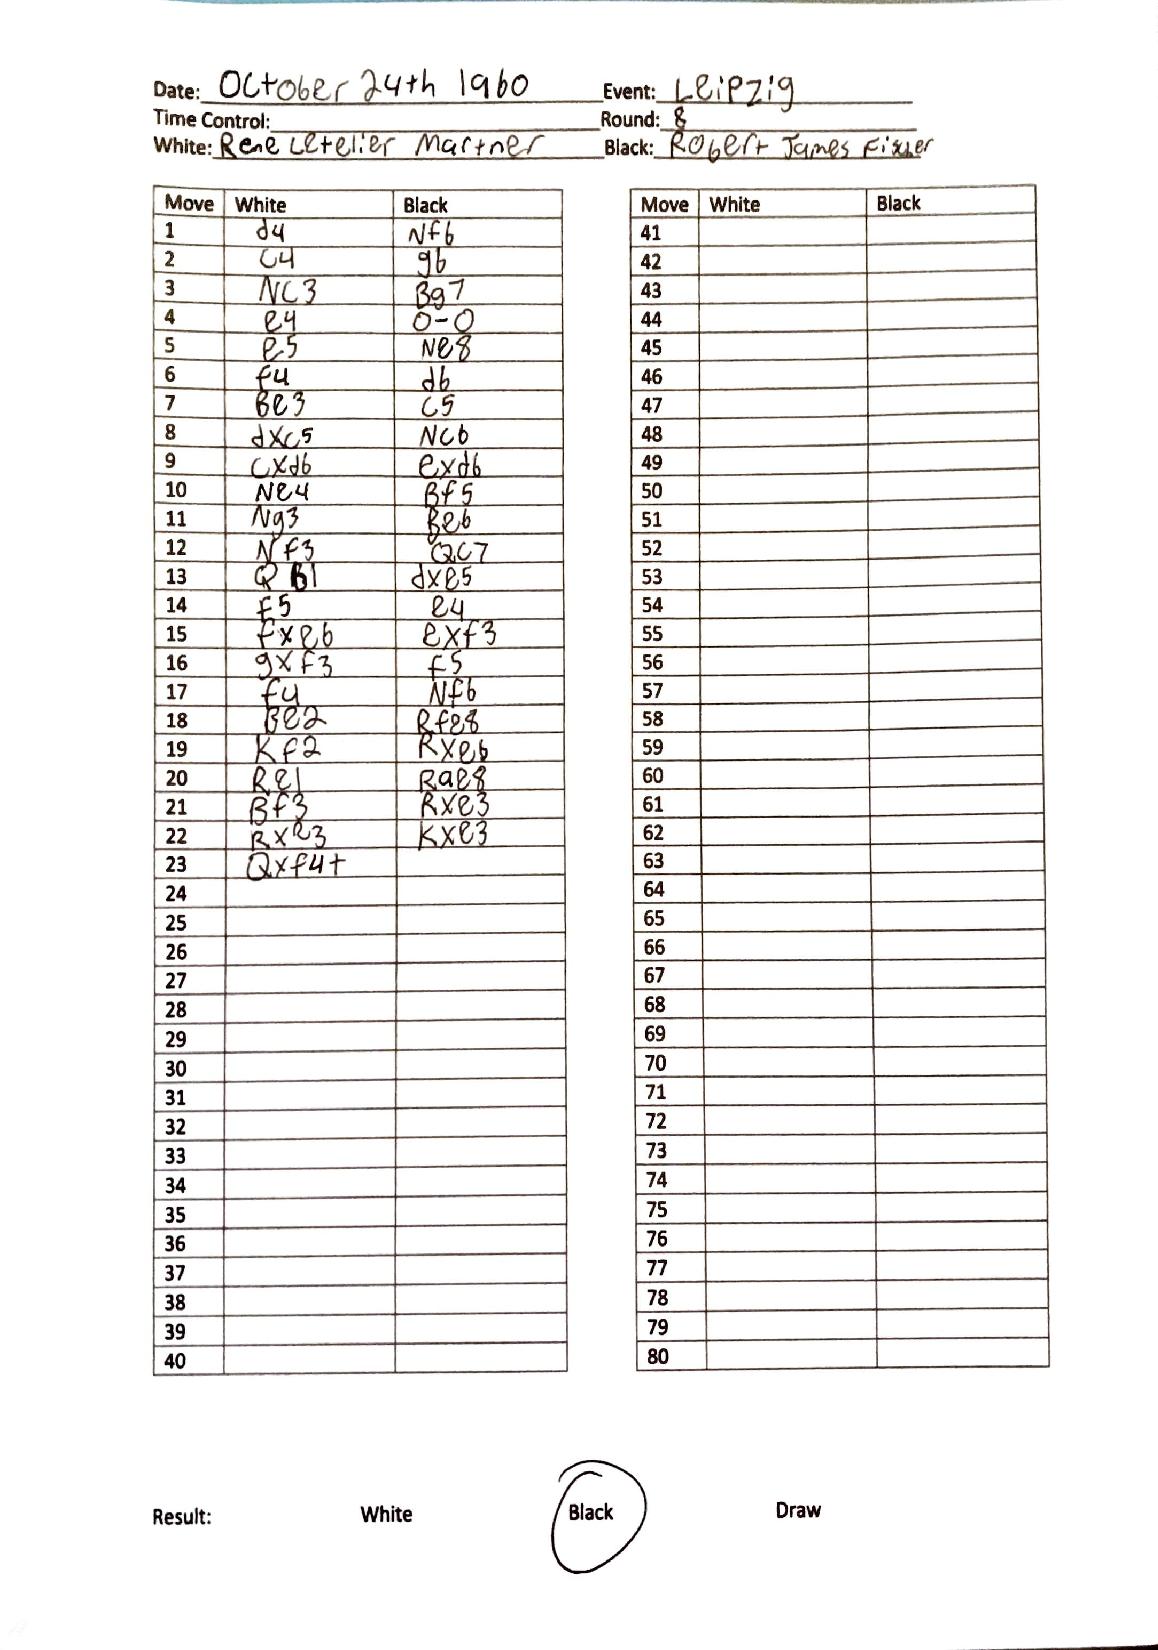 Date: October 24th 1960 Event: Leipzig
Time Control: Round: 8
White: Rene Letelier Martner Black: Robert James Fisher
Move White Black
1 d4 Nf6
2 C4 g6
3 NC3 Bg7
4 e4 0-0
5 e5 Ne8
6 f4 d6
7 Be3 C5
8 dxc5 Nc6
9 cxd6 exd6
10 Ne4 Bf5
11 Ng3 Be6
12 Nf3 QC7
13 Q B1 dxe5
14 f5 e4
15 fxe6 exf3
16 gxf3 f5
17 f4 Nf6
18 Be2 Rfe8
19 Kf2 Rxe6
20 Re1 Rae8
21 Bf3 Rxe3
22 Rxe3 Kxe3
23 Qxf4+
24
25
26
27
28
29
30
31
32
33
34
35
36
37
38
39
40
Move White Black
41
42
43
44
45
46
47
48
49
50
51
52
53
54
55
56
57
58
59
60
61
62
63
64
65
66
67
68
69
70
71
72
73
74
75
76
77
78
79
80
Result: White Black Draw